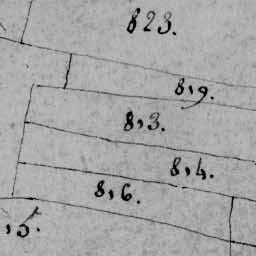 823.
819.
813.
814.
816.
15.